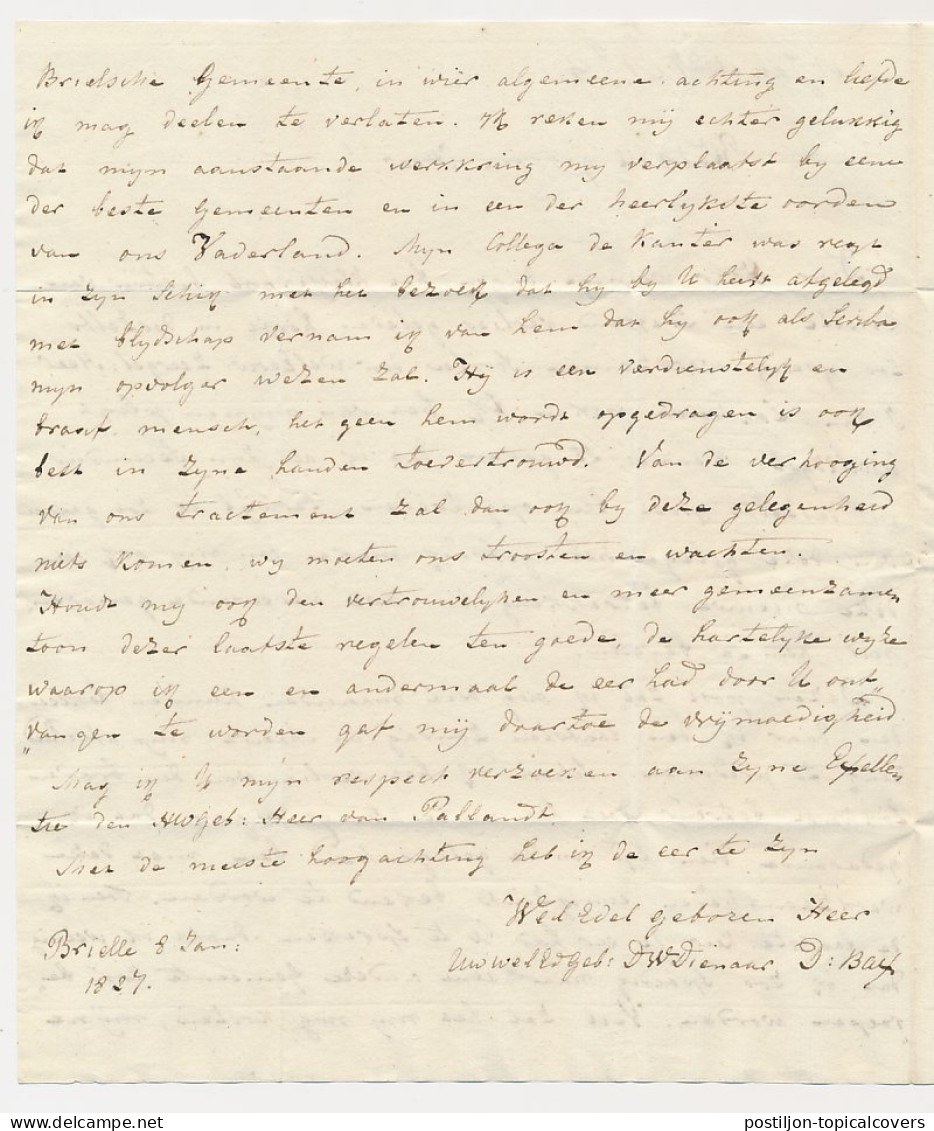 Brielsche Gemeente, in wier algemeene achting en liefde
ik mag deelen te verlaten. Ik reken mij echter gelukkig
dat myn aanstaande werkkring my verplaatst by eene
der beste Gemeenten en in een der heerlykste oorden
van ons Vaderland. Myn Collega de Kanter was regt
in zyn schik met het bezoek dat hy by U heeft afgelegd
met blydschap vernam ik van hem dat hy ook als Scriba
myn opvolger wezen zal. Hij is een verdienstelyk en
braaf mensch, het geen hem wordt opgedragen is ook
best in zyne handen toevertrouwd. Van de verhooging
van ons tractement zal dan ook by deze gelegenheid
niets komen, wy moeten ons troosten en wachten.
Houdt my ook den vertrouwelyken en meer gemeenzamen
toon dezer laatste regelen ten goede, de hartelyke wyze
waarop ik een en andermaal de eer had door U ont„
„vangen te worden gaf mij daartoe de vrijmoedigheid
Mag ik U mijn respect verzoeken aan zyne Exellen
tie den HWGeb: Heer van Pallandt.
Met de meeste hoogachting heb ik de eer te zyn
Wel Edel geboren Heer
Brielle 8 Jan: UwWelEdGeb: DWDienaar D:
1827.
postiljon-topicalcovers